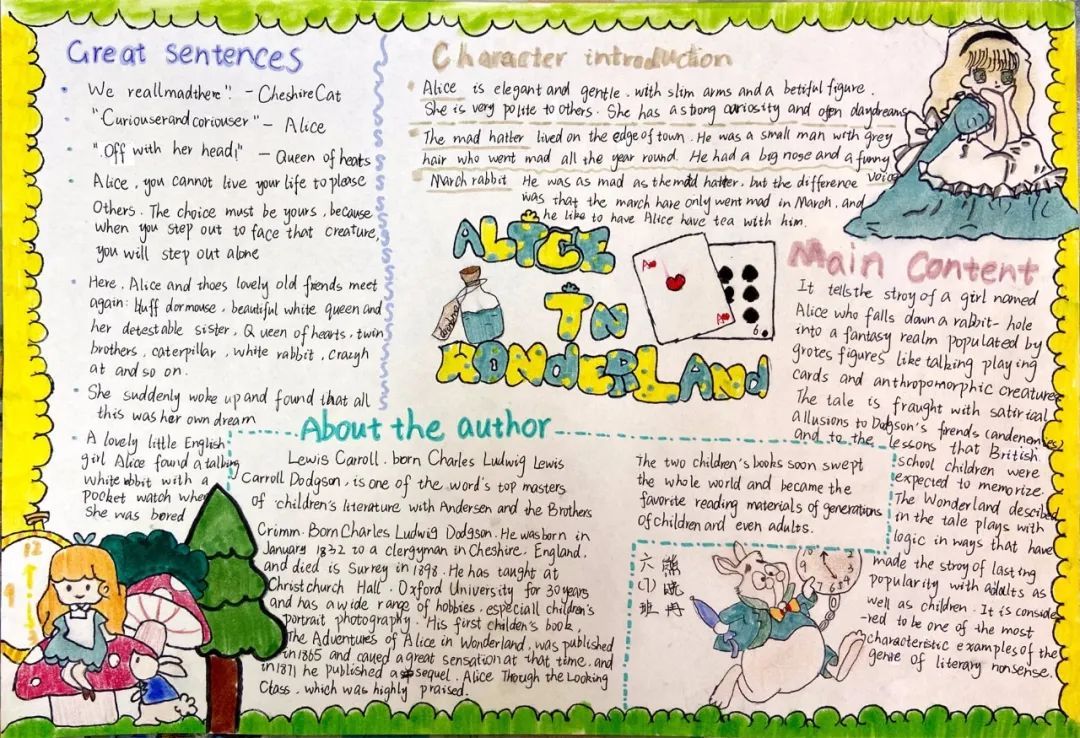 Great sentences
We reallmadthere". - CheshireCat
"Curiouserandcoriouser" - Alice
"Off with her head!" - Queen of heats
Alice, you cannot live your life to please
Others. The choice must be yours, because
when you step out to face that creature,
you will step out alone
Here, Alice and thoes lovely old frends meet
again: huff dormouse, beautiful white queen and
her detestable sister, Queen of hearts, twin
brothers, caterpillar, white rabbit, crazyh
at and so on.
She suddenly woke up and found that all
this was her own dream
A lovely little English
girl Alice found a talbing
white bbit with a
pocket watch when
She was bored
Character introduction
Alice is elegant and gentle, with slim arms and a betiful figure.
She is very polite to others. She has a strong curiosity and often daydreams
The mad hatter lived on the edge of town. He was a small man with grey
hair who went mad all the year round. He had a big nose and a funny
voice
March rabbit He was as mad as the mad hatter, but the difference
was that the march hare only went mad in March, and
he like to have Alice have tea with him.
ALICE
IN
WONDERLAND
A
A
6
Main Content
It tells the stroy of a girl named
Alice who falls down a rabbit-hole
into a fantasy realm populated by
grotes figures like talking playing
cards and anthropomorphic creature
The tale is fraught with satirical
allusions to Dodgson's frends and enemies
and to the lessons that British
school children were
expected to memorize.
The Wonderland descibed
in the tale plays with
logic in ways that have
made the stroy of lasting
popularity with adults as
well as children. It is conside
-red to be one of the most
characteristic examples of the
genre of literary nonsense.
About the author
Lewis Carroll, born Charles Ludwig Lewis
Carroll Dodgson, is one of the word's top masters
of children's literature with Andersen and the Brothers
Crimm. Born Charles Ludwig Dodgson. He was born in
January 1832 to a clergyman in Cheshire, England,
and died is Surrey in 1898. He has taught at
Christchurch Hall, Oxford University for 30 years
and has a wide range of hobbies, especiall children's
portrait photography. His first childen's book,
The Adventures of Alice in Wonderland, was published
in 1865 and caued a great sensation at that time, and
in 1871 he published a sequel, Alice Though the Looking
Ctass, which was highly praised.
The two children's books soon swept
the whole world and became the
favorite reading materials of generations
of children and even adults.
六(7)班
12
9